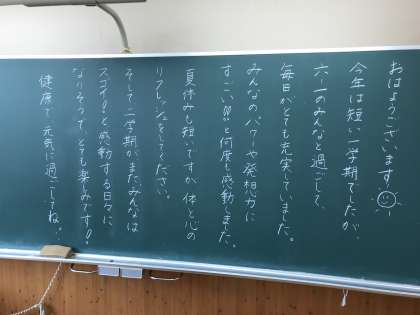 おはようございます
今年は短い一学期でしたが、
六一のみんなと過ごして、
毎日がとても充実していました。
みんなのパワーや発想力に
すごい!!と何度も感動しました。
夏休みも短いですが、体と心の
リフレッシュをしてください。
そして二学期がまたみんなは
スゴイ!と感動する日々に
なりそうで、とても楽しみです!
健康で、元気に過ごしてね!